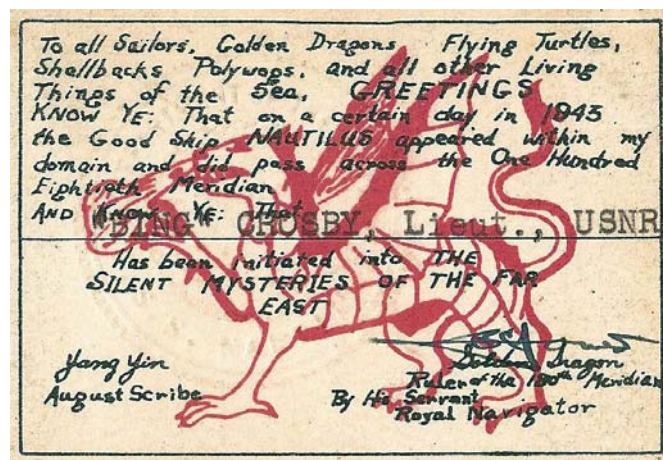 To all Sailors, Golden Dragons Flying Turtles,
Shellbacks Polywogs, and all other Living
Things of the Sea, GREETINGS
KNOW YE: That on a certain day in 1943
the Good Ship NAUTILUS appeared within my
domain and did pass across the One Hundred
Eightieth Meridian
AND KNOW YE: That
"BING" CROSBY, Lieut., USNR
Has been initiated into THE
SILENT MYSTERIES OF THE FAR
EAST
Yang Yin
August Scribe
Golden Dragon
Ruler of the 180th Meridian
By His Servant
Royal Navigator